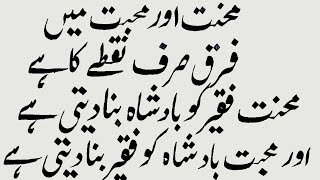 محنت اور محبت میں
فرق صرف نقطے کا ہے
محنت فقیر کو بادشاہ بنا دیتی ہے
اور محبت بادشاہ کو فقیر بنا دیتی ہے